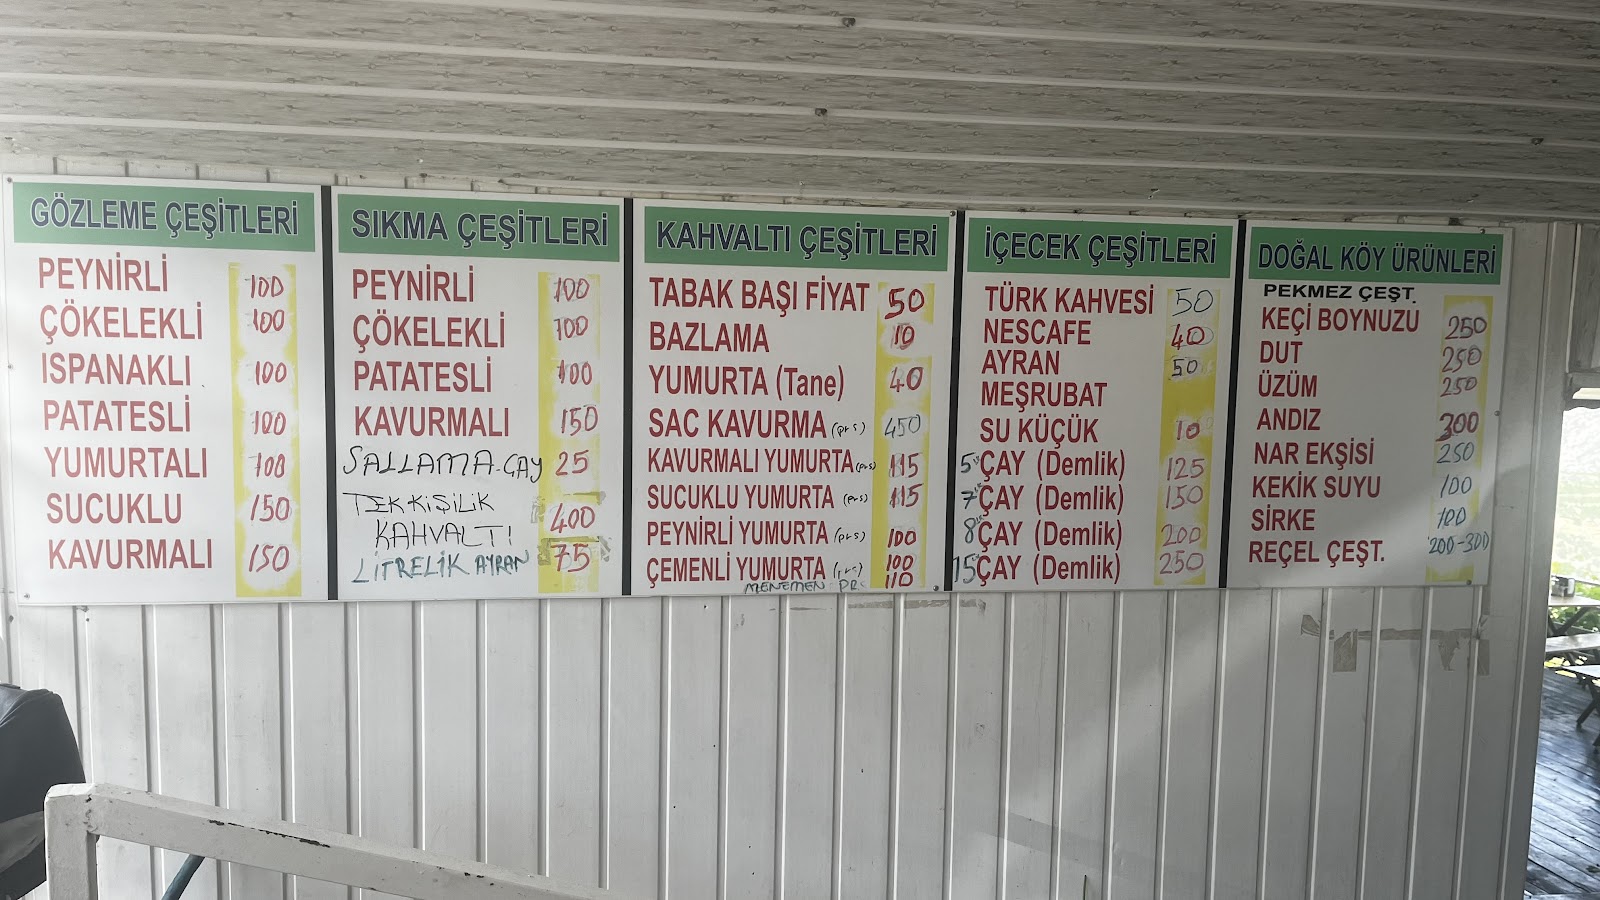 GÖZLEME ÇEŞİTLERİ
PEYNİRLİ 100
ÇÖKELEKLİ 100
ISPANAKLI 100
PATATESLİ 100
YUMURTALI 100
SUCUKLU 150
KAVURMALI 150
SIKMA ÇEŞİTLERİ
PEYNİRLİ 100
ÇÖKELEKLİ 100
PATATESLİ 100
KAVURMALI 150
SALLAMA-ÇAY 25
TEK KİŞİLİK
KAHVALTI 400
LİTRELİK AYRAN 75
KAHVALTI ÇEŞİTLERİ
TABAK BAŞI FİYAT 50
BAZLAMA 10
YUMURTA (Tane) 40
SAC KAVURMA (prs) 450
KAVURMALI YUMURTA (prs) 115
SUCUKLU YUMURTA (prs) 115
PEYNİRLİ YUMURTA (prs) 100
ÇEMENLİ YUMURTA (prs) 100
MENEMEN PR. 110
İÇECEK ÇEŞİTLERİ
TÜRK KAHVESİ 50
NESCAFE 40
AYRAN 50
MEŞRUBAT
SU KÜÇÜK 10
5 ÇAY (Demlik) 125
7 ÇAY (Demlik) 150
8 ÇAY (Demlik) 200
15 ÇAY (Demlik) 250
DOĞAL KÖY ÜRÜNLERİ
PEKMEZ ÇEŞT.
KEÇİ BOYNUZU 250
DUT 250
ÜZÜM 250
ANDIZ 300
NAR EKŞİSİ 250
KEKİK SUYU 100
SİRKE 100
REÇEL ÇEŞT. 200-300